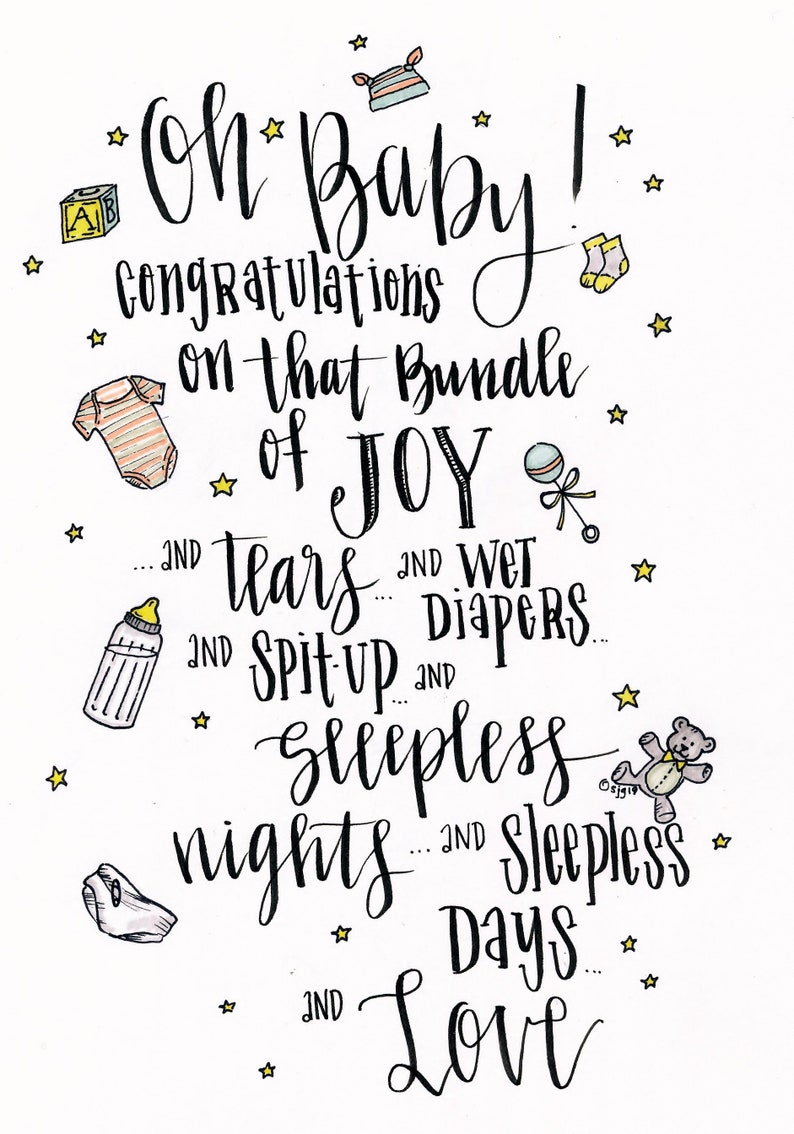 Oh Baby!
A B
congratulations
on that Bundle
of JOY
...and tears... and wet
Diapers...
and spit-up... and
sleepless
©sjg19
nights... and sleepless
Days...
and Love